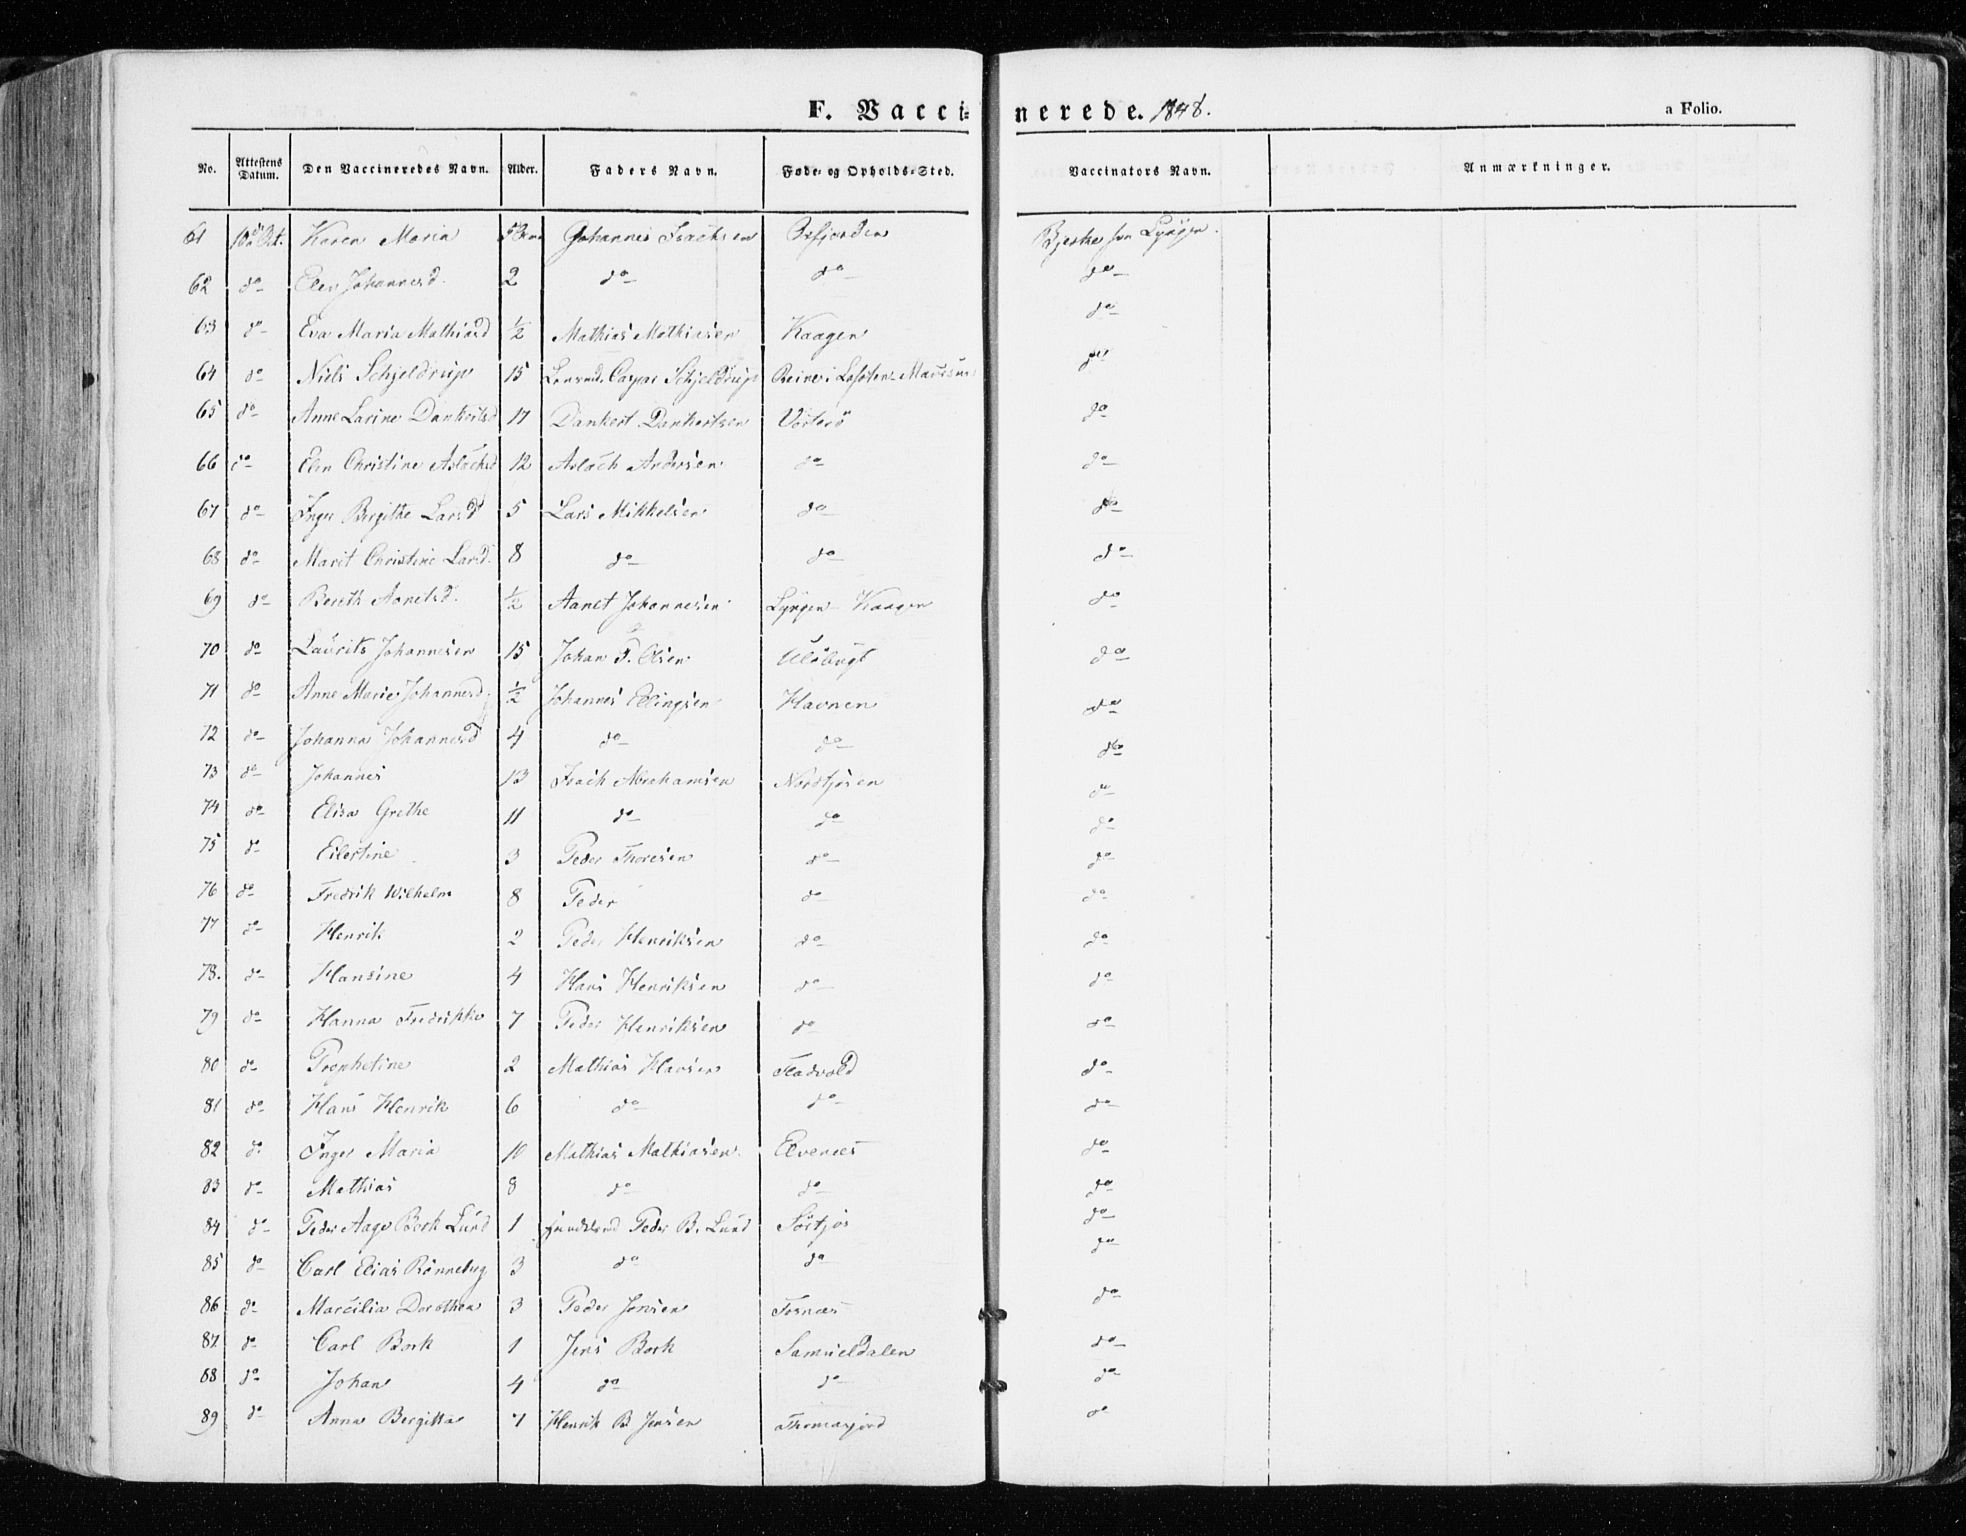 F. Vaccinerede. 1848.
a Folio.
No. Attestens Datum. Den Vaccineredes Navn. Alder. Faders Navn. Føde- og Opholds-Sted. Vaccinators Navn. Anmærkninger.
61 Oct. Karen Maria Johannes Isachsen Oxfjorden Lyngen.
62 do Elen Johannesd. 2 do do do
63 do Eva Maria Mathiasd ½ Mathias Mathiasen Kaagen do
64 do Niels Schjeldrup 15 Caspar Schjeldrup Reine i Lofoten do
65 do Anne Larine Dankertsd 17 Dankert Dankertsen Vorterö do
66 do Elen Christine Aslachsd 12 Aslach Andersen do do
67 do Inger Bergithe Larsd 5 Lars Mikkelsen do do
68 do Marit Christine Larsd. 8 do do do
69 do Bereth ½ Johannesen Lyngen Kaagen do
70 do Laurits Johannesen 15 Johan P. Olsen do
71 do Anne Marie Johannesd ½ Johannes Ellingsen Havnen do
72 do Johanna Johannesd 4 do do do
73 do Johannes 13 Isach Abrahamsen Nordkjosen do
74 do Elisa Grethe 11 do do do
75 do Eilertine 3 Peder Thoresen do do
76 do Fredrik Wilhelm 8 Peder do do
77 do Henrik 2 Peder Henriksen do do
78. do Hansine 4 Hans Henriksen do do
79 do Hanna Fredrikke 7 Peder Henriksen do do
80 do Prophetine 2 Mathias Hansen do
81 do Hans Henrik 6 do do do
82 do Inger Maria 10 Mathias Mathiasen Elvenæs do
83 do Mathias 8 do do do
84 do Peder Aage Bork Lund 1 Peder B. Lund Sörkjos do
85 do Carl Elias Rönneberg 3 do do do
86 do Marcilia Dorothea 3 Peder Jensen do
87 do Carl Bork 1 Jens Bork Samueldalen do
88 do Johan 4 do do do
89 do Anna Bergitta 7 Henrik B. Jensen Thomasjord do